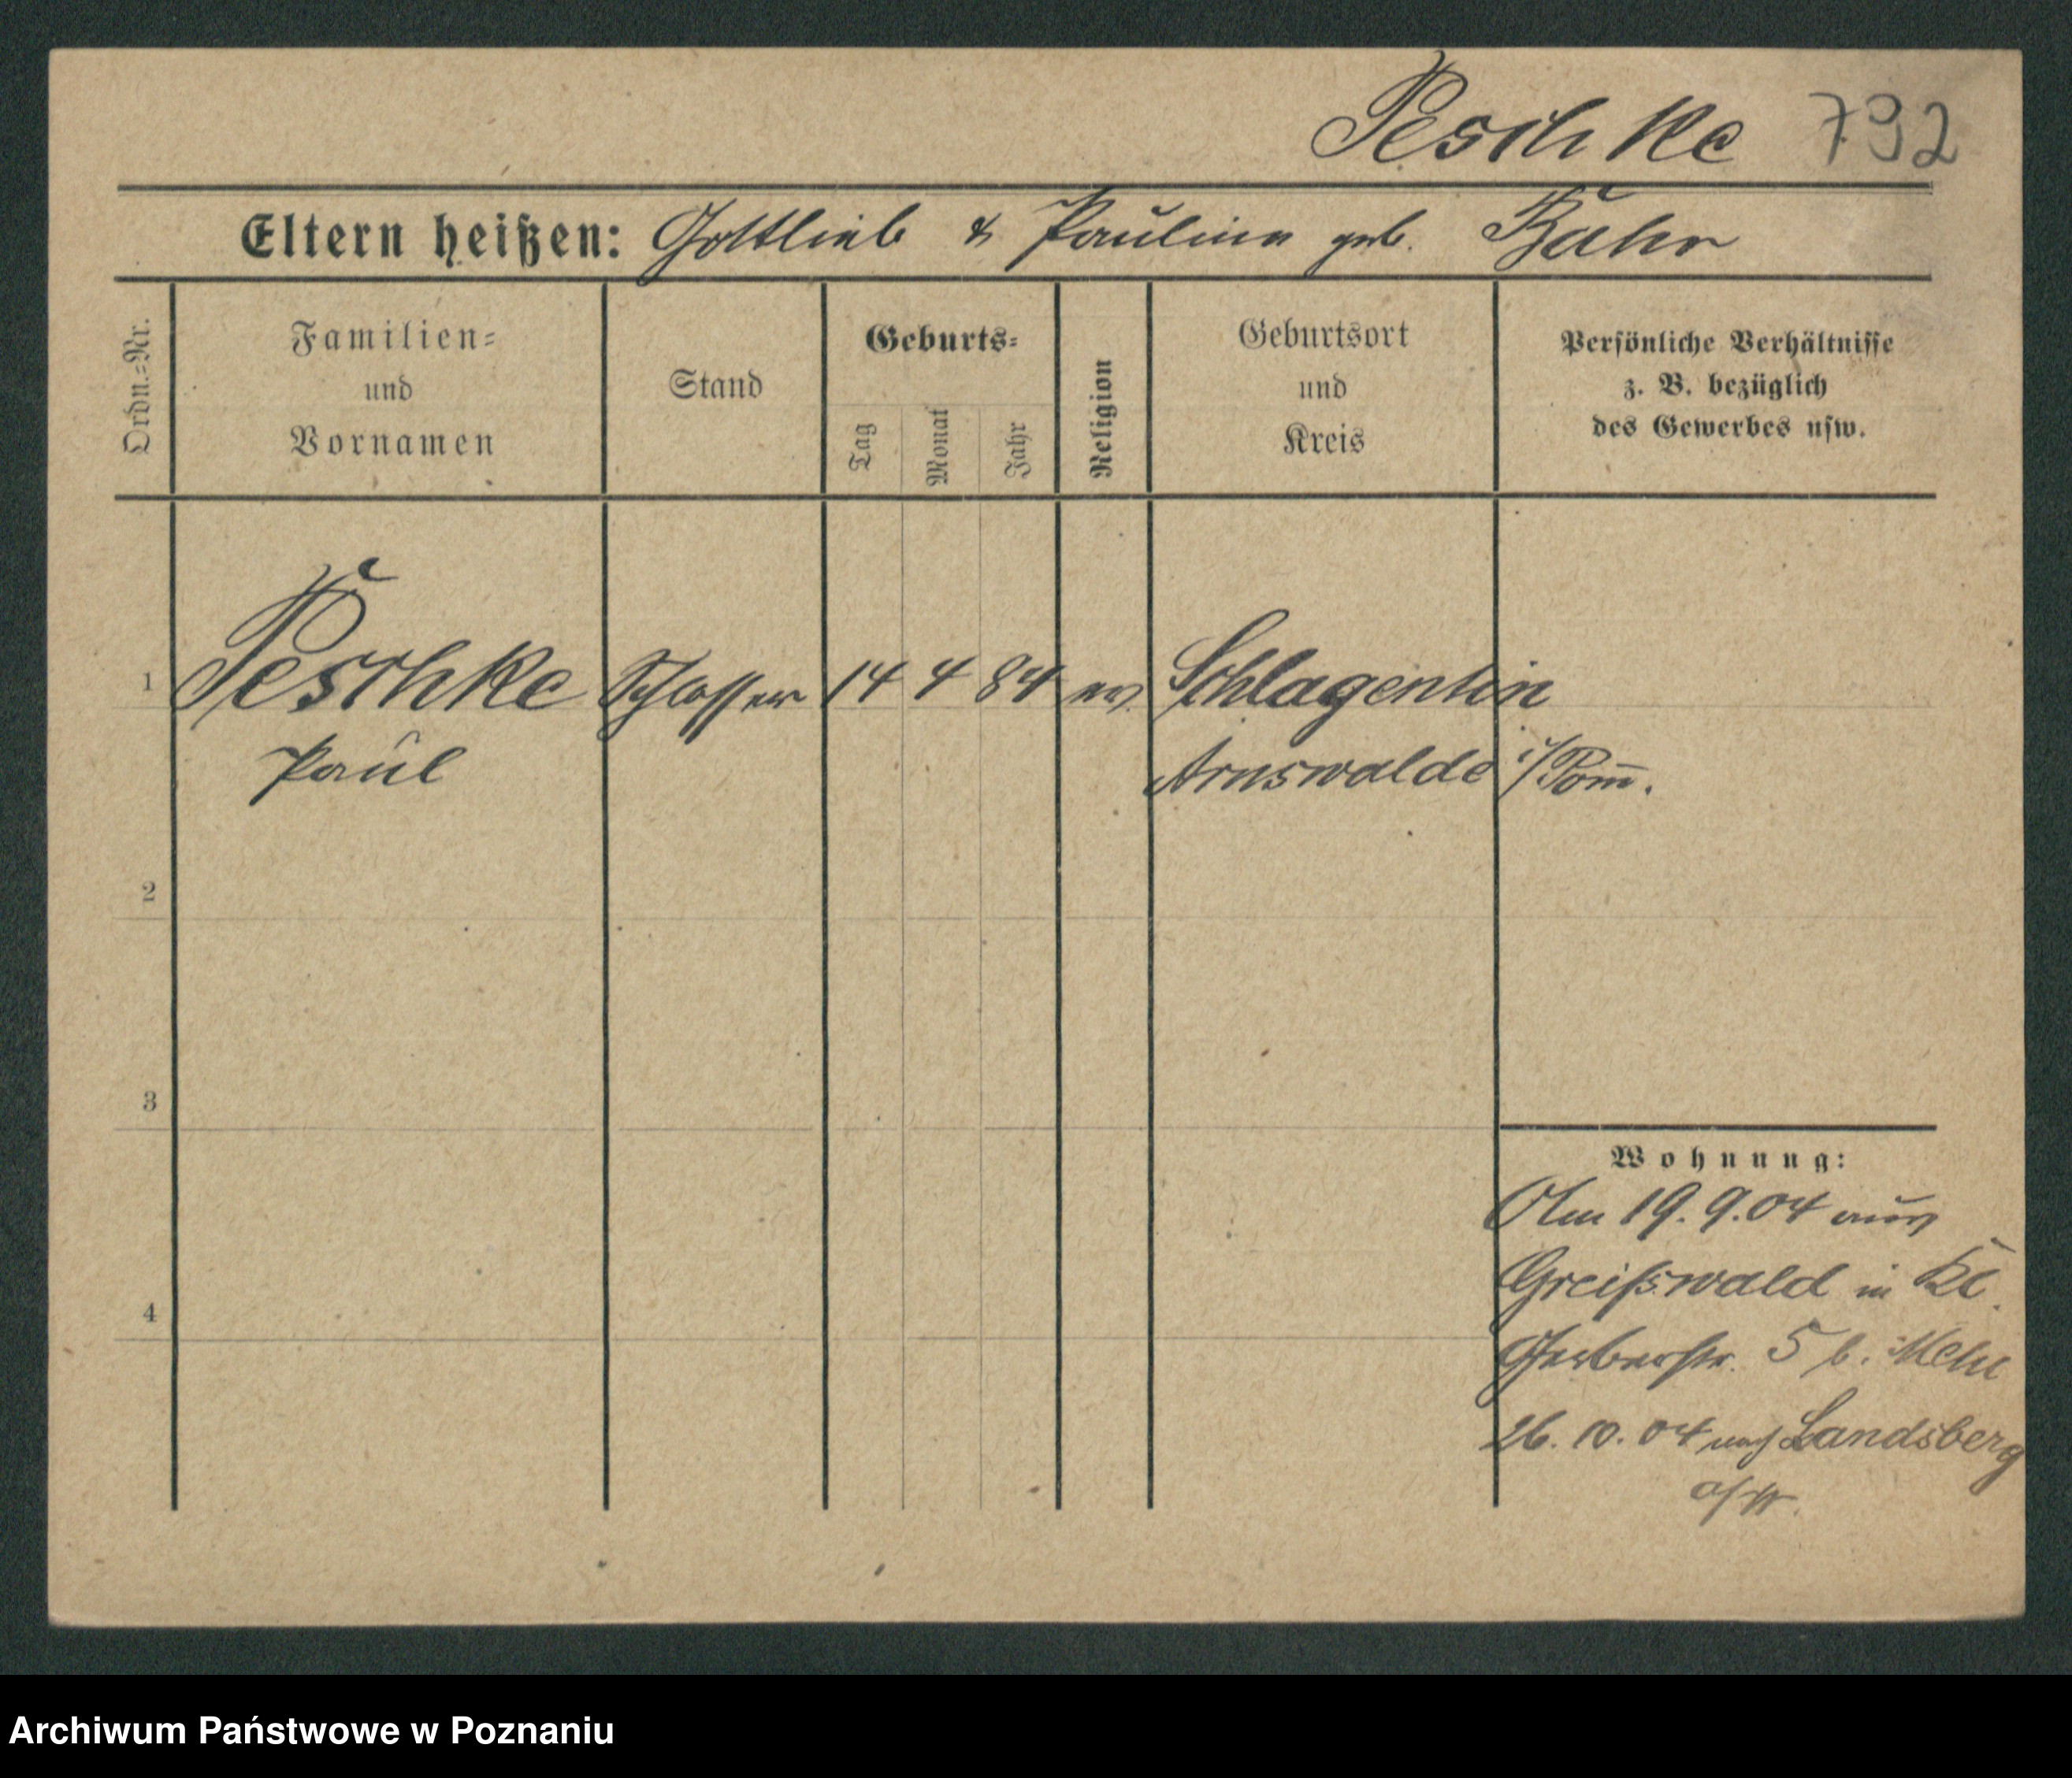 Peschke 792
Eltern heißen: Gottlieb & Pauline geb. Bahr
Ordn.-Nr.
Familien-
und
Vornamen
Stand
Geburts-
Tag
Monat
Jahr
Religion
Geburtsort
und
Kreis
Persönliche Verhältnisse
z. B. bezüglich
des Gewerbes usw.
1 Peschke Schlosser 14 4 84 ev. Schlagentin
Paul Arnswalde i/Pom̅.
2
3
Wohnung:
Am 19.9.04 aus
Greifswald in Kl.
4
Gerberstr. 5 b.
26.10.04 nach Landsberg
a/W.
Archiwum Państwowe w Poznaniu